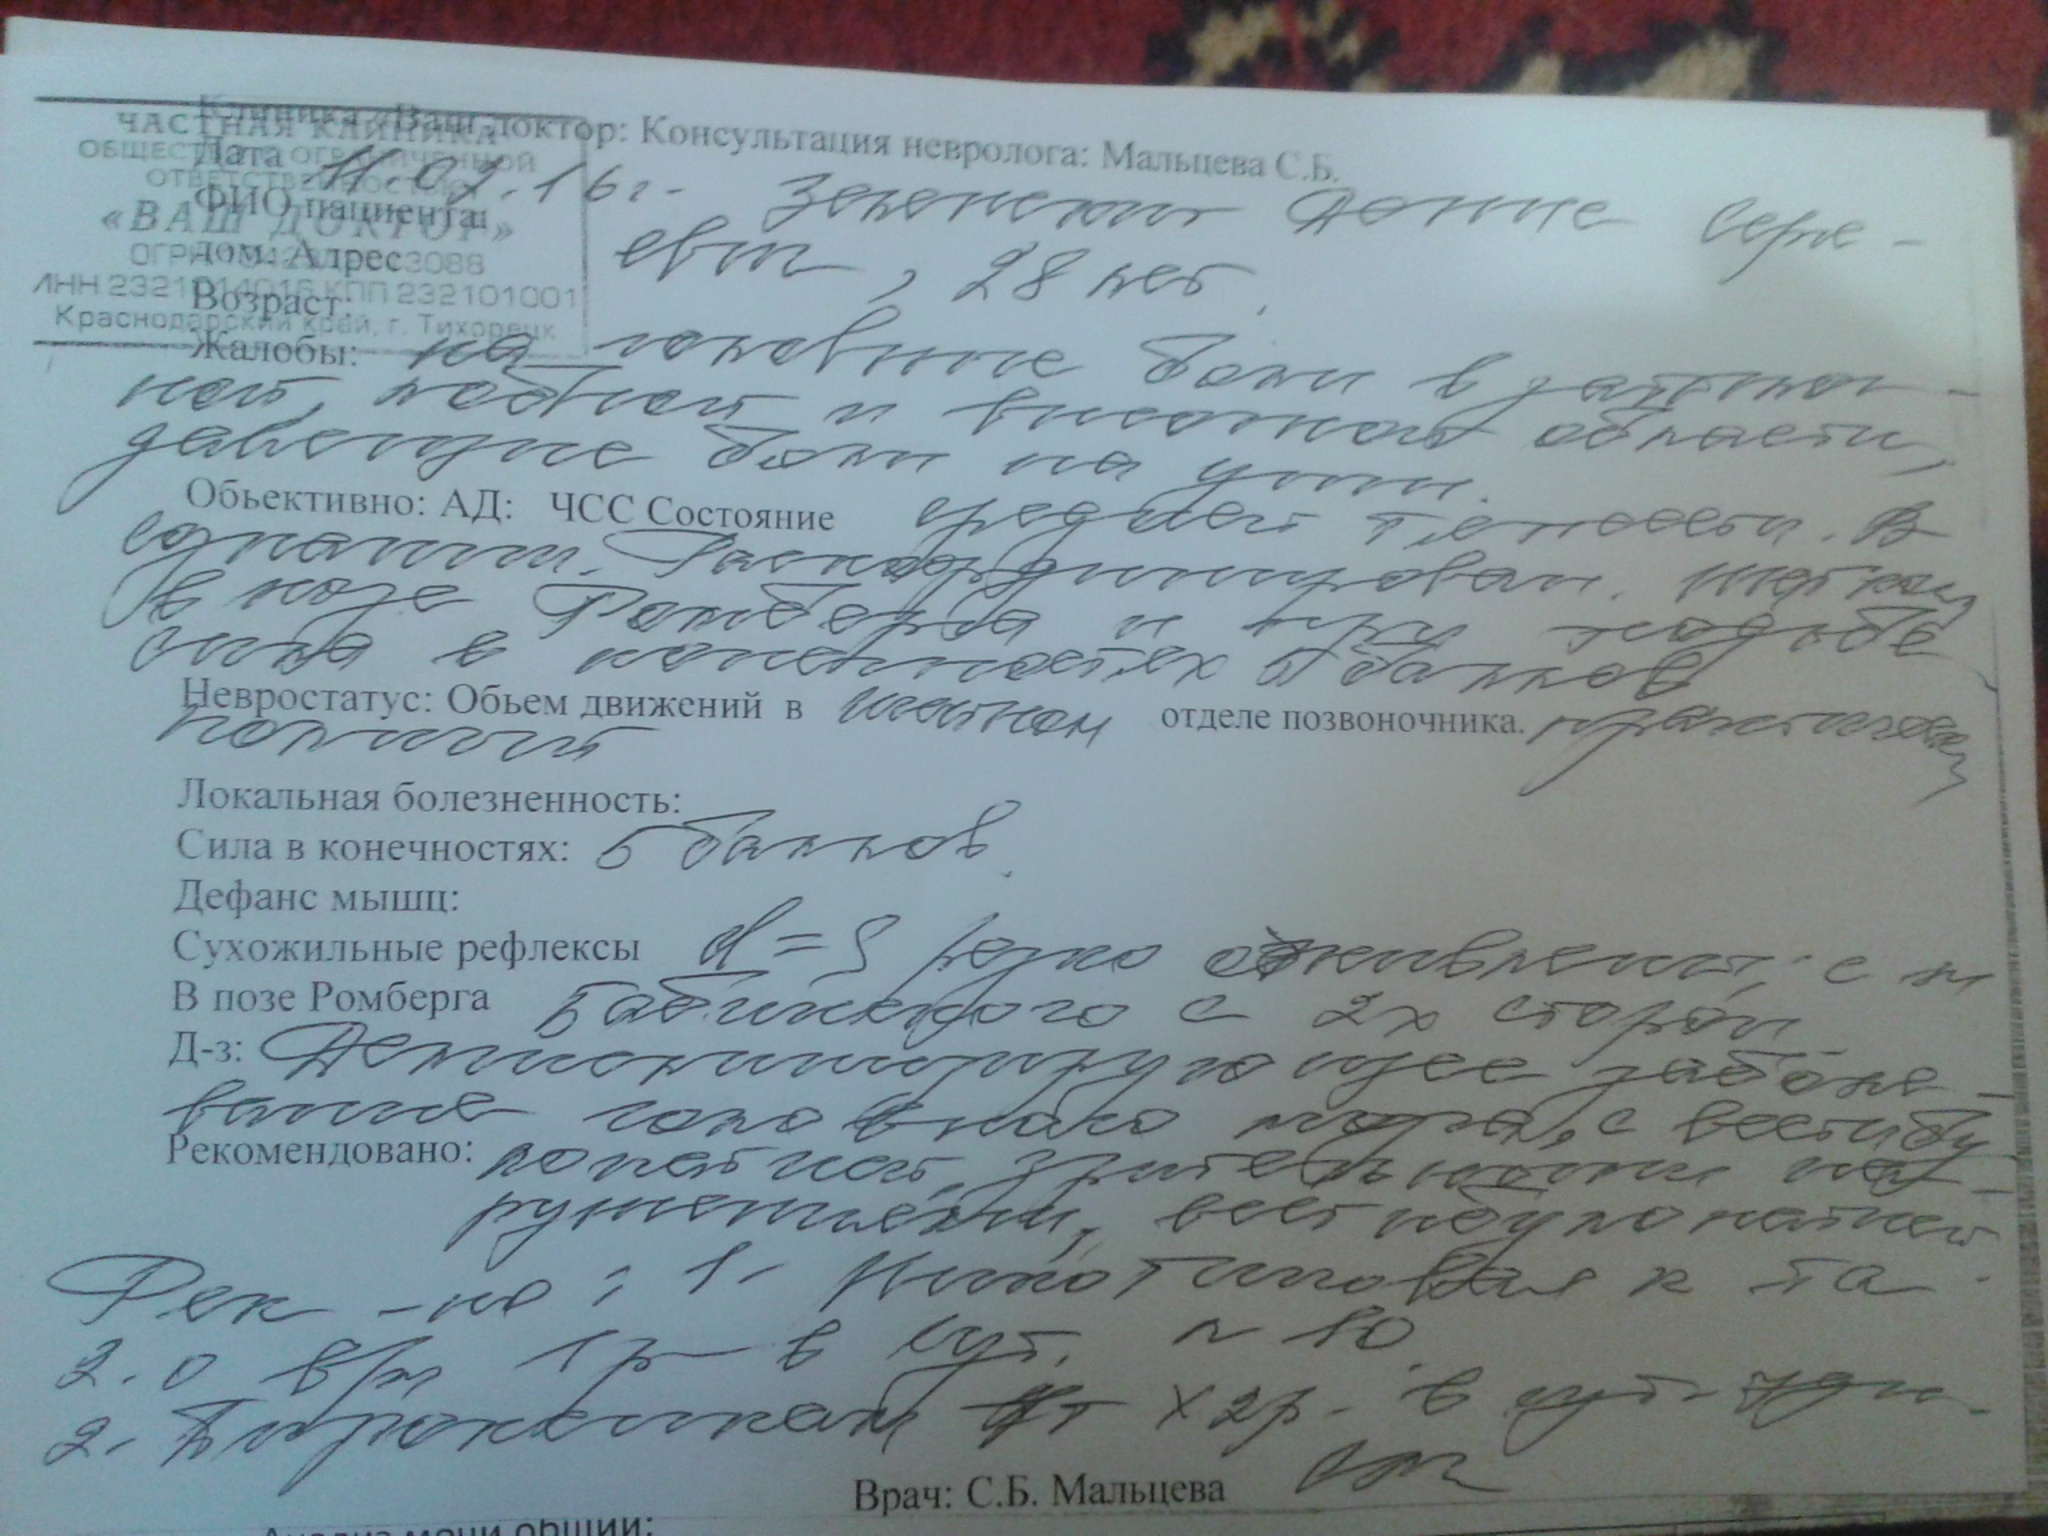 Клиника «Ваш доктор: Консультация невролога: Мальцева С.Б.
ЧАСТНАЯ КЛИНИКА
ОБЩЕСТВО С ОГРАНИЧЕННОЙ
ОТВЕТСТВЕННОСТЬЮ
«ВАШ ДОКТОР»
ИНН 2321014016 КПП 232101001
Краснодарский край, г. Тихорецк
Дата 16г.
ФИО пациента:
дом. Адрес евич, 28 лет.
Возраст:
Жалобы: на головные боли в затылоч-
ной, лобной и височной области,
давящие боли на уши.
Обьективно: АД: ЧСС Состояние средней тяжести. В
сознании. Раскоординирован. Шаткость
в позе Ромберга и при ходьбе
сила в конечностях 5 баллов
Невростатус: Обьем движений в шейном отделе позвоночника. практически
полный
Локальная болезненность:
Сила в конечностях: 5 баллов.
Дефанс мышц:
Сухожильные рефлексы d=S резко оживлены, с-м
В позе Ромберга Бабинского с 2х сторон
Д-з: Демиелинизирующее заболе-
вание головного мозга, с вестибу
Рекомендовано: лопатией, зрительными на-
рушениями, вестибулопатией
Рек-но: 1. Никотиновая к-та
2.0 в/м 1р в сут. N 10.
2. Пирацетам х 2р. в сут.
Врач: С.Б. Мальцева
Анализ мочи общий: